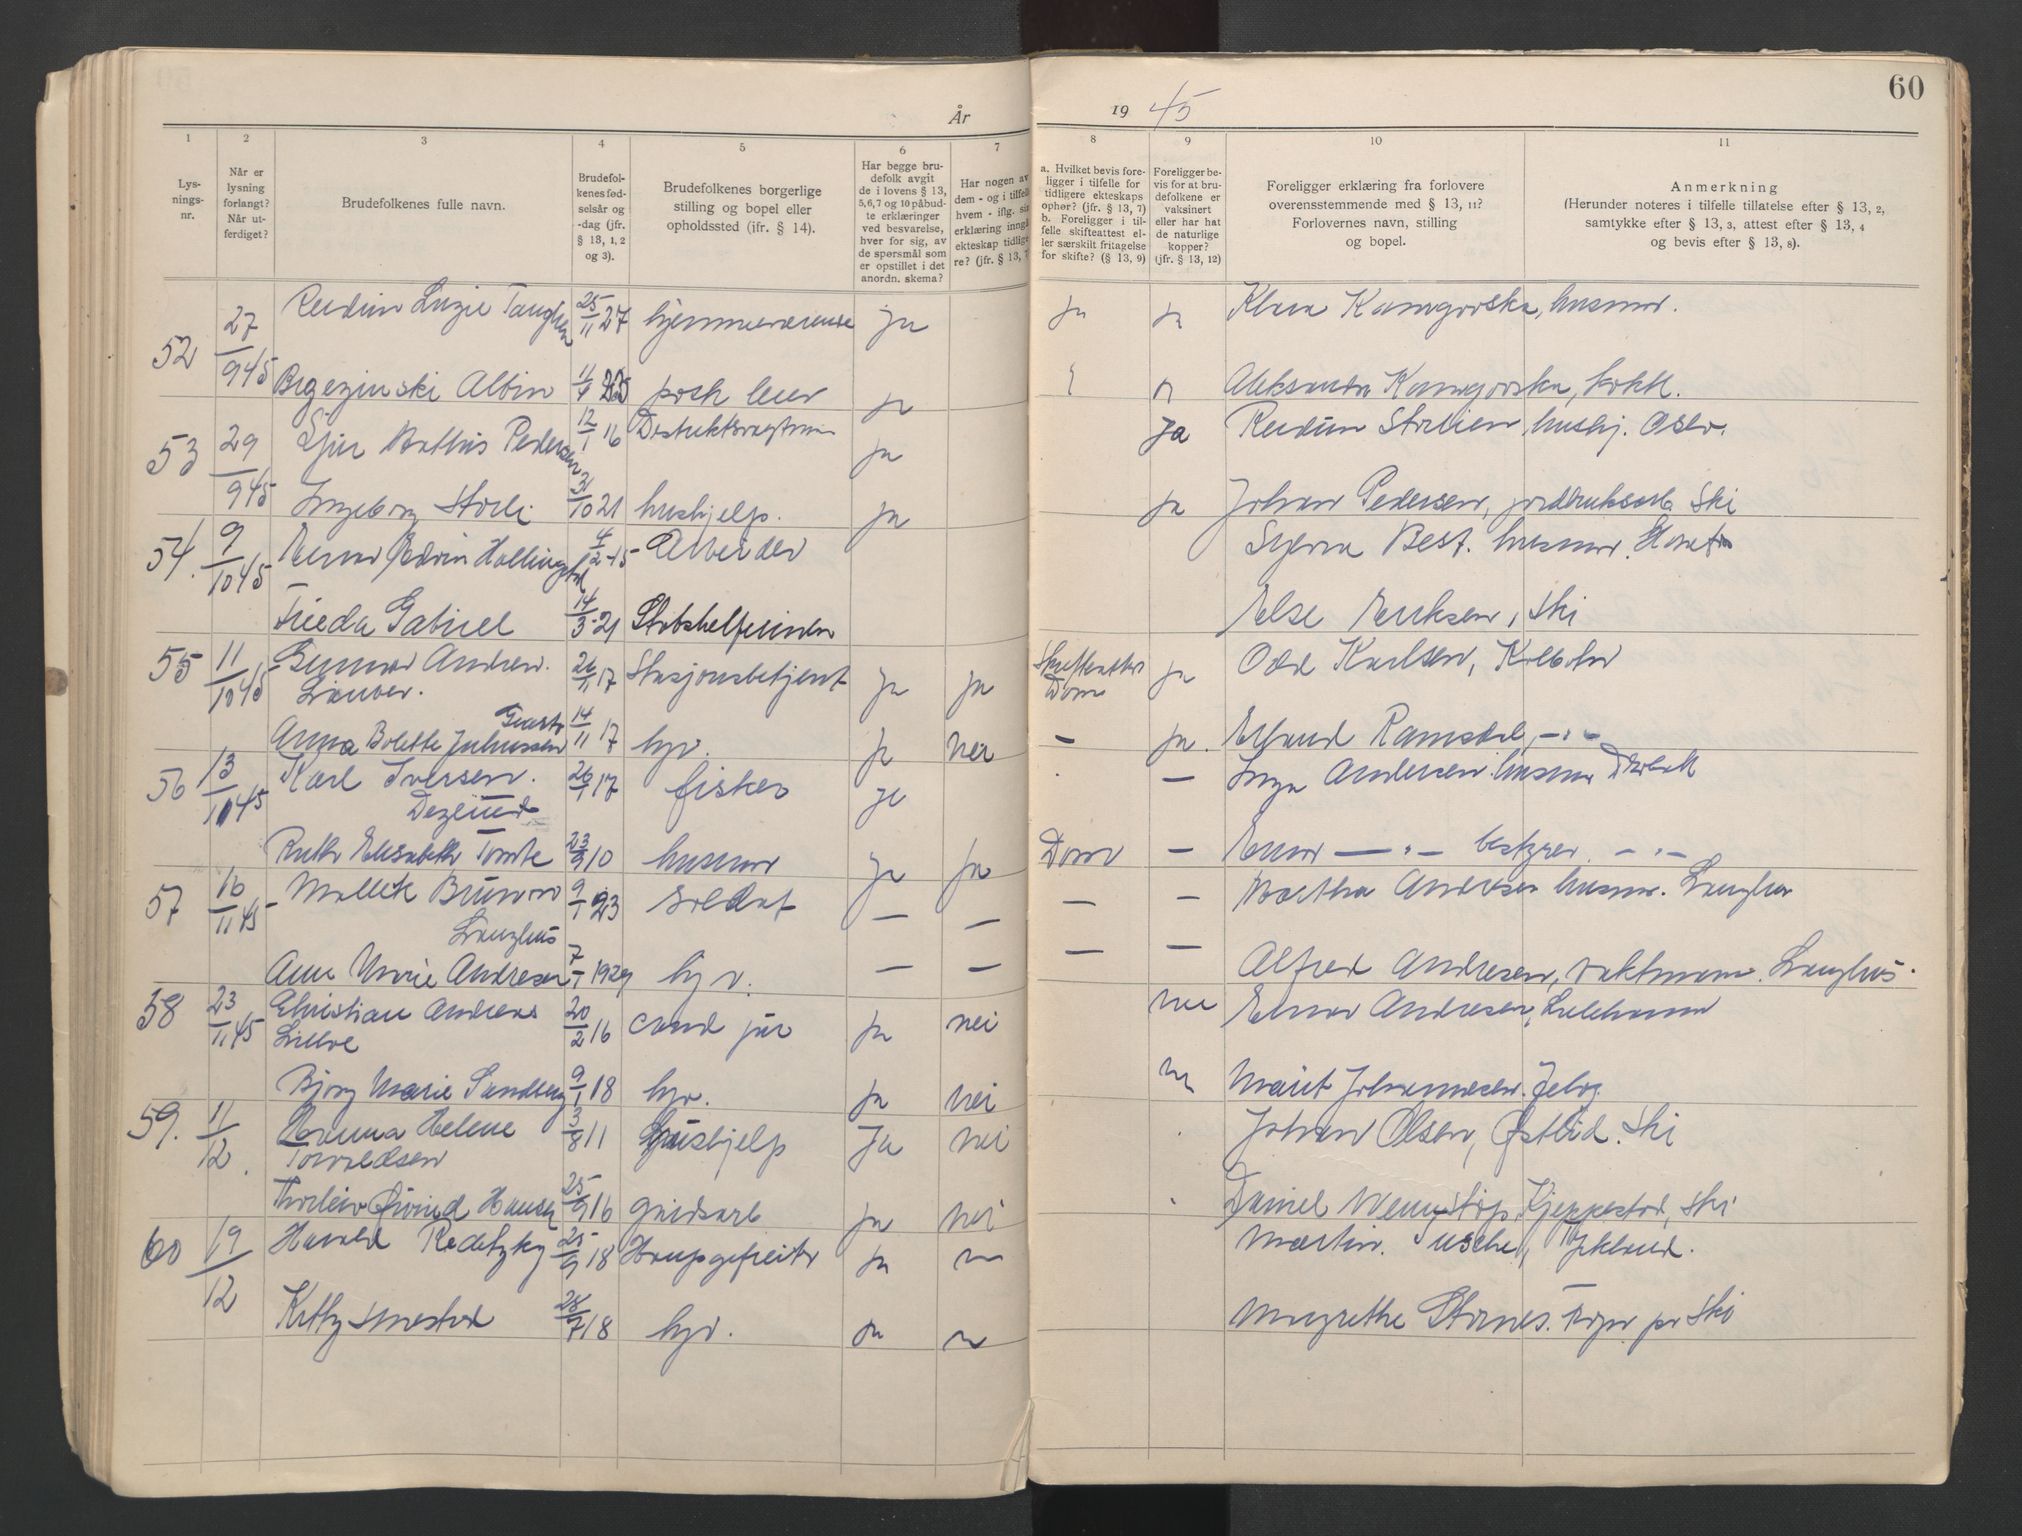 60
År
19 45
1 2 3 4 5 6 7 8 9 10 11
Lys-
nings-
nr.
Når er
lysning
forlangt?
Når ut-
ferdiget?
Brudefolkenes fulle navn.
Brudefol-
kenes fød-
selsår og
-dag (jfr.
§ 13, 1, 2
og 3).
Brudefolkenes borgerlige
stilling og bopel eller
opholdssted (ifr. § 14).
Har begge bru-
defolk avgit
de i lovens § 13,
5, 6, 7 og 10 påbud-
te erklæringer
ved besvarelse,
hver for sig, av
de spørsmål som
er opstillet i det
anordn. skema?
Har nogen av
dem - og i tilfelle
hvem - iflg. sin
erklæring inngå
ekteskap tidlige
re? (jfr. § 13, 7
a. Hvilket bevis fore-
ligger i tilfelle for
tidligere ekteskaps
ophør? (jfr. § 13, 7)
b. Foreligger i til-
felle skifteattest el-
ler særskilt fritagelse
for skifte? (§ 13, 9)
Foreligger be-
vis for at bru-
defolkene er
vaksinert
eller har hat
de naturlige
kopper?
(jfr. § 13, 12)
Foreligger erklæring fra forlovere
overensstemmende med § 13, 11?
Forlovernes navn, stilling
og bopel.
Anmerkning
(Herunder noteres i tilfelle tillatelse efter § 13, 2,
samtykke efter § 13, 3, attest efter § 13, 4
og bevis efter § 13, 8).
52 27/9 45 Reidun Luzie 25/11 27 hjemmeværende ja ja ja Klara husmor.
Brzezinski Albin post ja Aleksandra
53 29/9 45 Mathis Pedersen 12/1 16 ja ja Reidun hushj. Oslo.
Ingeborg Storli 3/10 21 hushjelp. ja ja Johan Pedersen, Ski
54. 9/10 45 Einar Edvin 4/2 -15 Arbeider Best. husmor.
Frieda Gabriel 14/3 - 21 Stabshelferinden Else Eriksen, Ski
55 11/10 45 Gunnar Andreas 26/11 17 Stasjonsbetjent ja ja Skifteattest ja Odd Karlsen, Kolbotn
Dom
Anna Bolette Juliussen 14/11 17 hjv. ja nei – ja. Erland Ramsdal, – " –
56 13/10 45 Karl Iversen. 26/1 17 fisker ja – Inga Andersen husmor Drøbak
Ruth Elisabeth Tomte 23/9 10 husmor ja ja Dom – Einar – " – bestyrer. – " –
57 16/11 45 Bruno 9/1 23 soldat – – – – Martha Andresen husmor. Langhus
Langhus
Anne Marie Andresen 7/1 1929 hjv. – – – – Alfred Andresen, vaktmann. Langhus.
58 23/11 45 Christian Andreas 20/2 16 cand jur ja nei nei Einar Andresen, Lillehammer
Lilloe
Bjørg Marie Sandberg 9/1 18 hjv. ja nei Marit Johannesen. Jeløy.
59. 11/12. Hanna Helene 3/8 11 hushjelp Ja nei Johan Olsen, Østlid. Ski
Torvaldsen
Thorleiv Øivind Hansen 25/9 16 gårdsarb ja nei Daniel Kjeppestad, Ski
60 19/12 Harald Redetzky 25/9 18 Haupgefreiter ja Martin.
Kitty 28/7 18 hjv. ja Margrethe Stornes. pr Ski